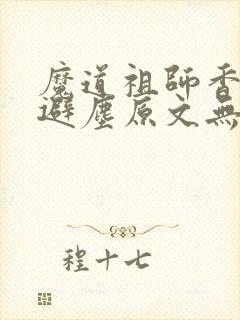 魔道祖師香
避塵原文無
程十七